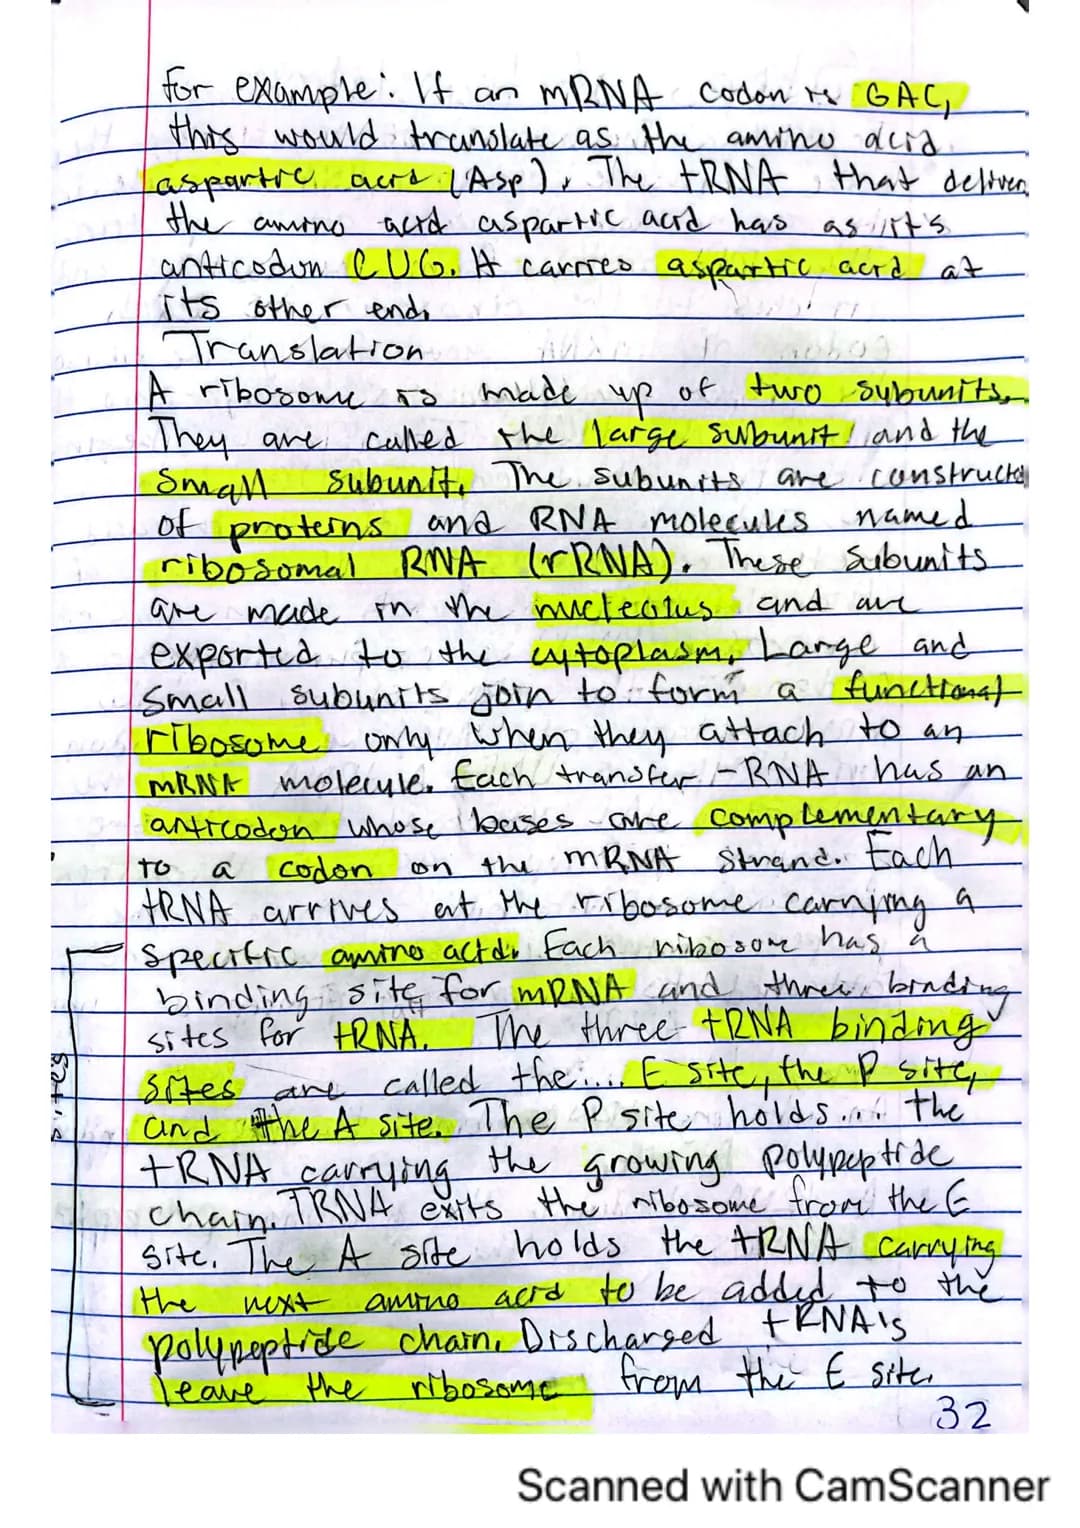 for example: If an mRNA codon is GAC,
this would translate as the amino acid
aspartic acid (Asp). The tRNA that deliver
the amino acid aspartic acid has as it's
anticodon CUG. It carries aspartic acid at
its other end.
Translation
A ribosome is made up of two subunits.
They are called the large subunit and the
small subunit. The subunits are constructed
of proteins and RNA molecules named
ribosomal RNA (rRNA). These subunits
are made in the nucleolus and are
exported to the cytoplasm. Large and
small subunits join to form a functional
ribosome only when they attach to an
mRNA molecule. Each transfer-RNA has an
anticodon whose bases are complementary
to a codon on the mRNA strand. Each
tRNA arrives at the ribosome carrying a
specific amino acid. Each ribosome has a
binding site for mRNA and three binding
sites for tRNA. The three tRNA binding
sites are called the.... E site, the P site,
and the A site. The P site holds.... the
tRNA carrying the growing polypeptide
chain. TRNA exits the ribosome from the E
site. The A site holds the tRNA carrying
the next amino acid to be added to the
polypeptide chain. Discharged tRNA's
leave the ribosome from the E site.
32
Scanned with CamScanner